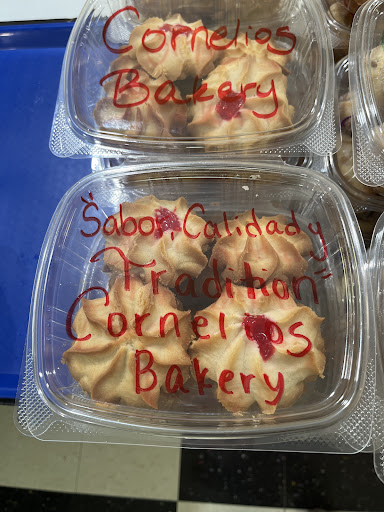 Cornelios
Bakery
"Sabor, Calidad y
Tradition"
Cornelios
Bakery